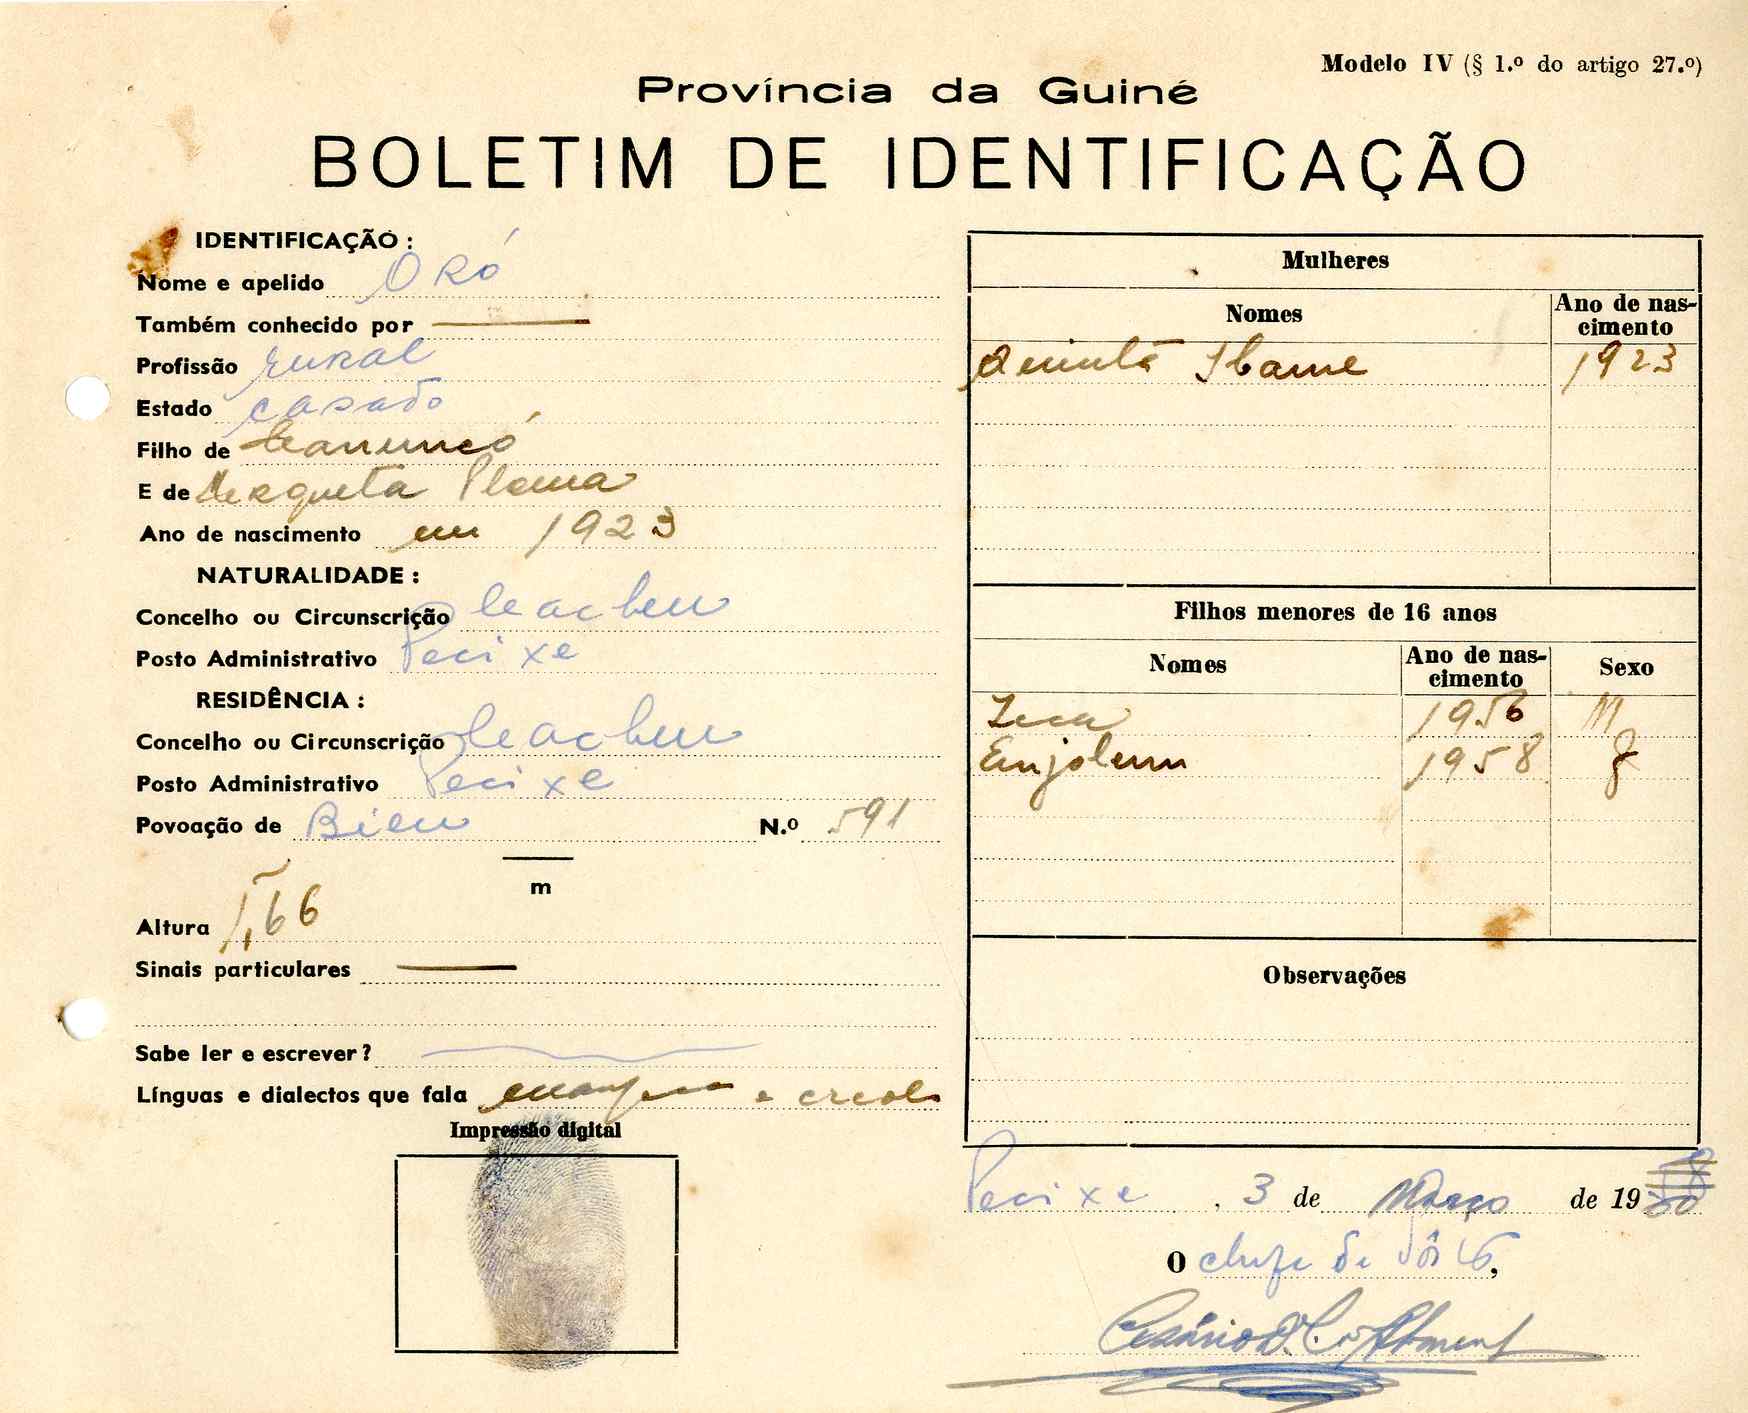 Modelo IV (§ 1.º do artigo 27.º)
Província da Guiné
BOLETIM DE IDENTIFICAÇÃO
IDENTIFICAÇÃO :
Nome e apelido Oró
Também conhecido por
Profissão rural
Estado casado
Filho de
E de
Ano de nascimento em 1923
NATURALIDADE :
Concelho ou Circunscrição Cacheu
Posto Administrativo Pecixe
RESIDÊNCIA :
Concelho ou Circunscrição Cacheu
Posto Administrativo Pecixe
Povoação de Bieu N.º 591
m
Altura 1,66
Sinais particulares
Sabe ler e escrever ?
Línguas e dialectos que fala e creolo
Impressão digital
Mulheres
Nomes Ano de nas-
cimento
1923
Filhos menores de 16 anos
Nomes Ano de nas-
cimento Sexo
1956 M
1958
Observações
Pecixe, 3 de Março de 19
O chefe de Pôsto,